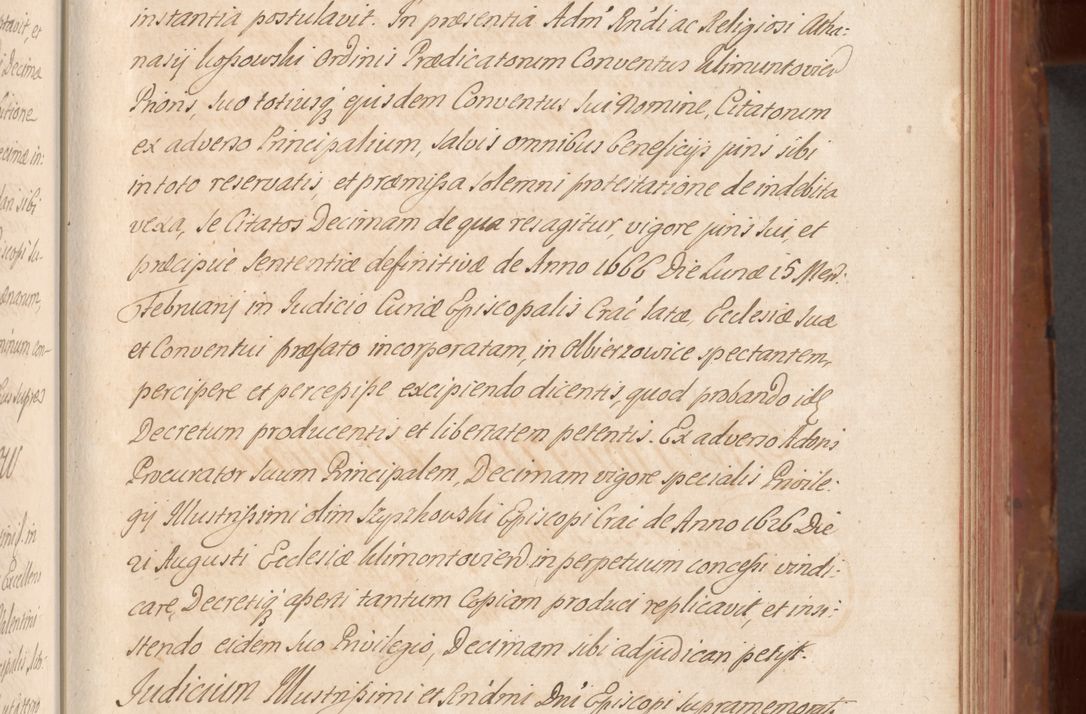 instantia postulavit. In præsentia Adm' Rn'di ac Religiosi Atha:
nasij Ordinis Prædicatorum Conventus Klimuntovien
Prioris, suo totiusq ejusdem Conventus sui Nomine, Citatorum
ex adverso Principalium, salvis omnibus beneficijs juris sibi
in toto reservatis, et præmissa solemni protestatione de indebita
vexa, se Citatos Decimam de qua res agitur, vigore juris sui, et
præcipue Sententiæ definitivæ de Anno 1666 Die Lunæ 15 Men:
Februarij in Judicio Curiæ Episcopalis Crac' latæ, Ecclesiæ suæ
et Conventui præfato incorporatam, in Olbierzowice spectantem,
percipere et percepisse excipiendo dicentis, quod probando id
Decretum producentis et libertatem petentis. Ex adverso Actoris
Procurator suum Principalem, Decimam vigore specialis Privile:
gij Illustrissimi olim Szyszkowski Episcopi Crac' de Anno 1626 Die
21 Augusti Ecclesiæ Klimontovien in perpetuum concessi vindi:
care, Decretiq asserti tantum Copiam produci replicavit, et insi:
stendo eidem suo Privilegio, Decimam sibi adjudicari petijt.
Judicium Illustrissimi et Rn'dmi Dni Episcopi supramemorati
ptavit et
Decima
itione
ecimæ in:
sibi
iscopi
nuin con-
supre
W
in
Excellen
alentini